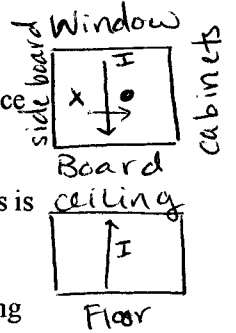 Window
side board
I
ce
x
cabinets
Board
s is
ceiling
I
ng
Floor